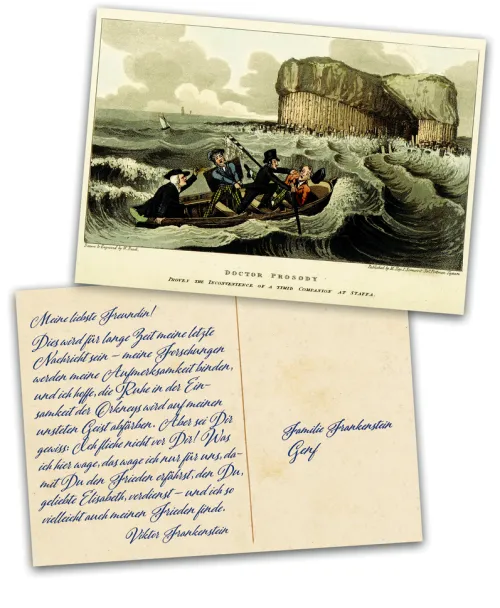 Drawn & Engraved by W. Read.
DOCTOR PROSODY
PROVES THE INCONVENIENCE OF A TIMID COMPANION AT STAFFA.
Meine liebste Freundin!
Dies wird für lange Zeit meine letzte
Nachricht sein – meine Forschungen
werden meine Aufmerksamkeit binden,
und ich hoffe, die Ruhe in der Ein-
samkeit der Orkneys wird auf meinen
unsteten Geist abfärben. Aber sei Dir
gewiss: Ich fliehe nicht vor Dir! Was
ich hier wage, das wage ich nur für uns, da-
mit Du den Frieden erfährst, den Du,
geliebte Elisabeth, verdienst – und ich so
vielleicht auch meinen Frieden finde.
Viktor Frankenstein
Familie Frankenstein
Genf